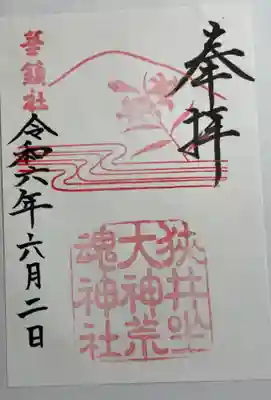 奉拝
華鎮社
令和六年六月二日
狭井坐
大神荒
魂神社